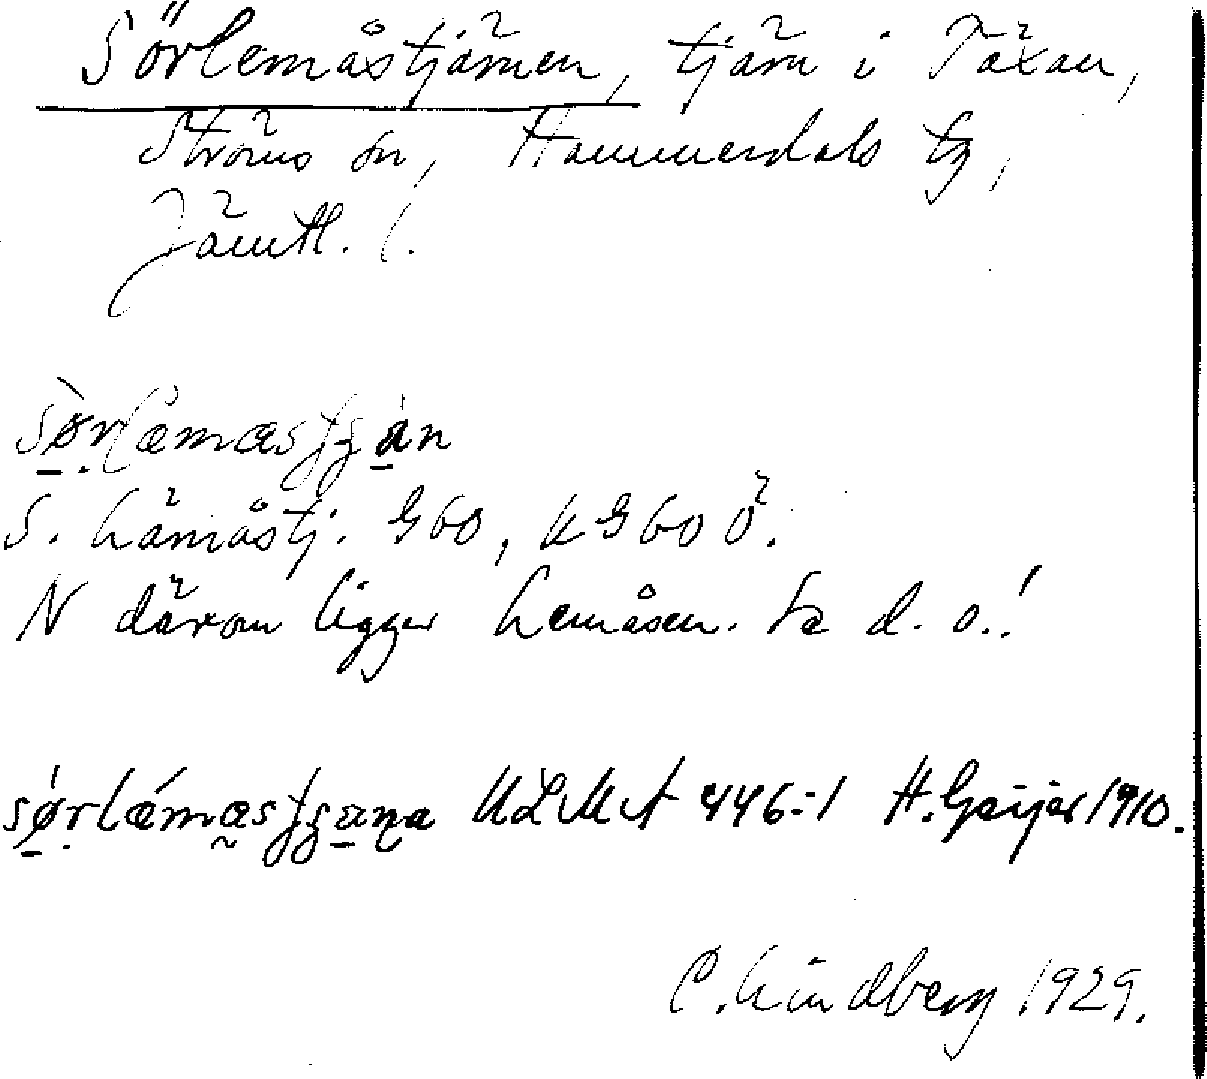 Sörlemåstjärnen, tjärn i Täxan,
Ströms sn, Hammerdals tg,
Jämtl. l.
S. Lämåstj. G60, KG60 Ö.
N därom ligger Lemåsen. Se d. o.!
ULMA 446:1 H. Geijer 1910.
C. Lindberg 1929.